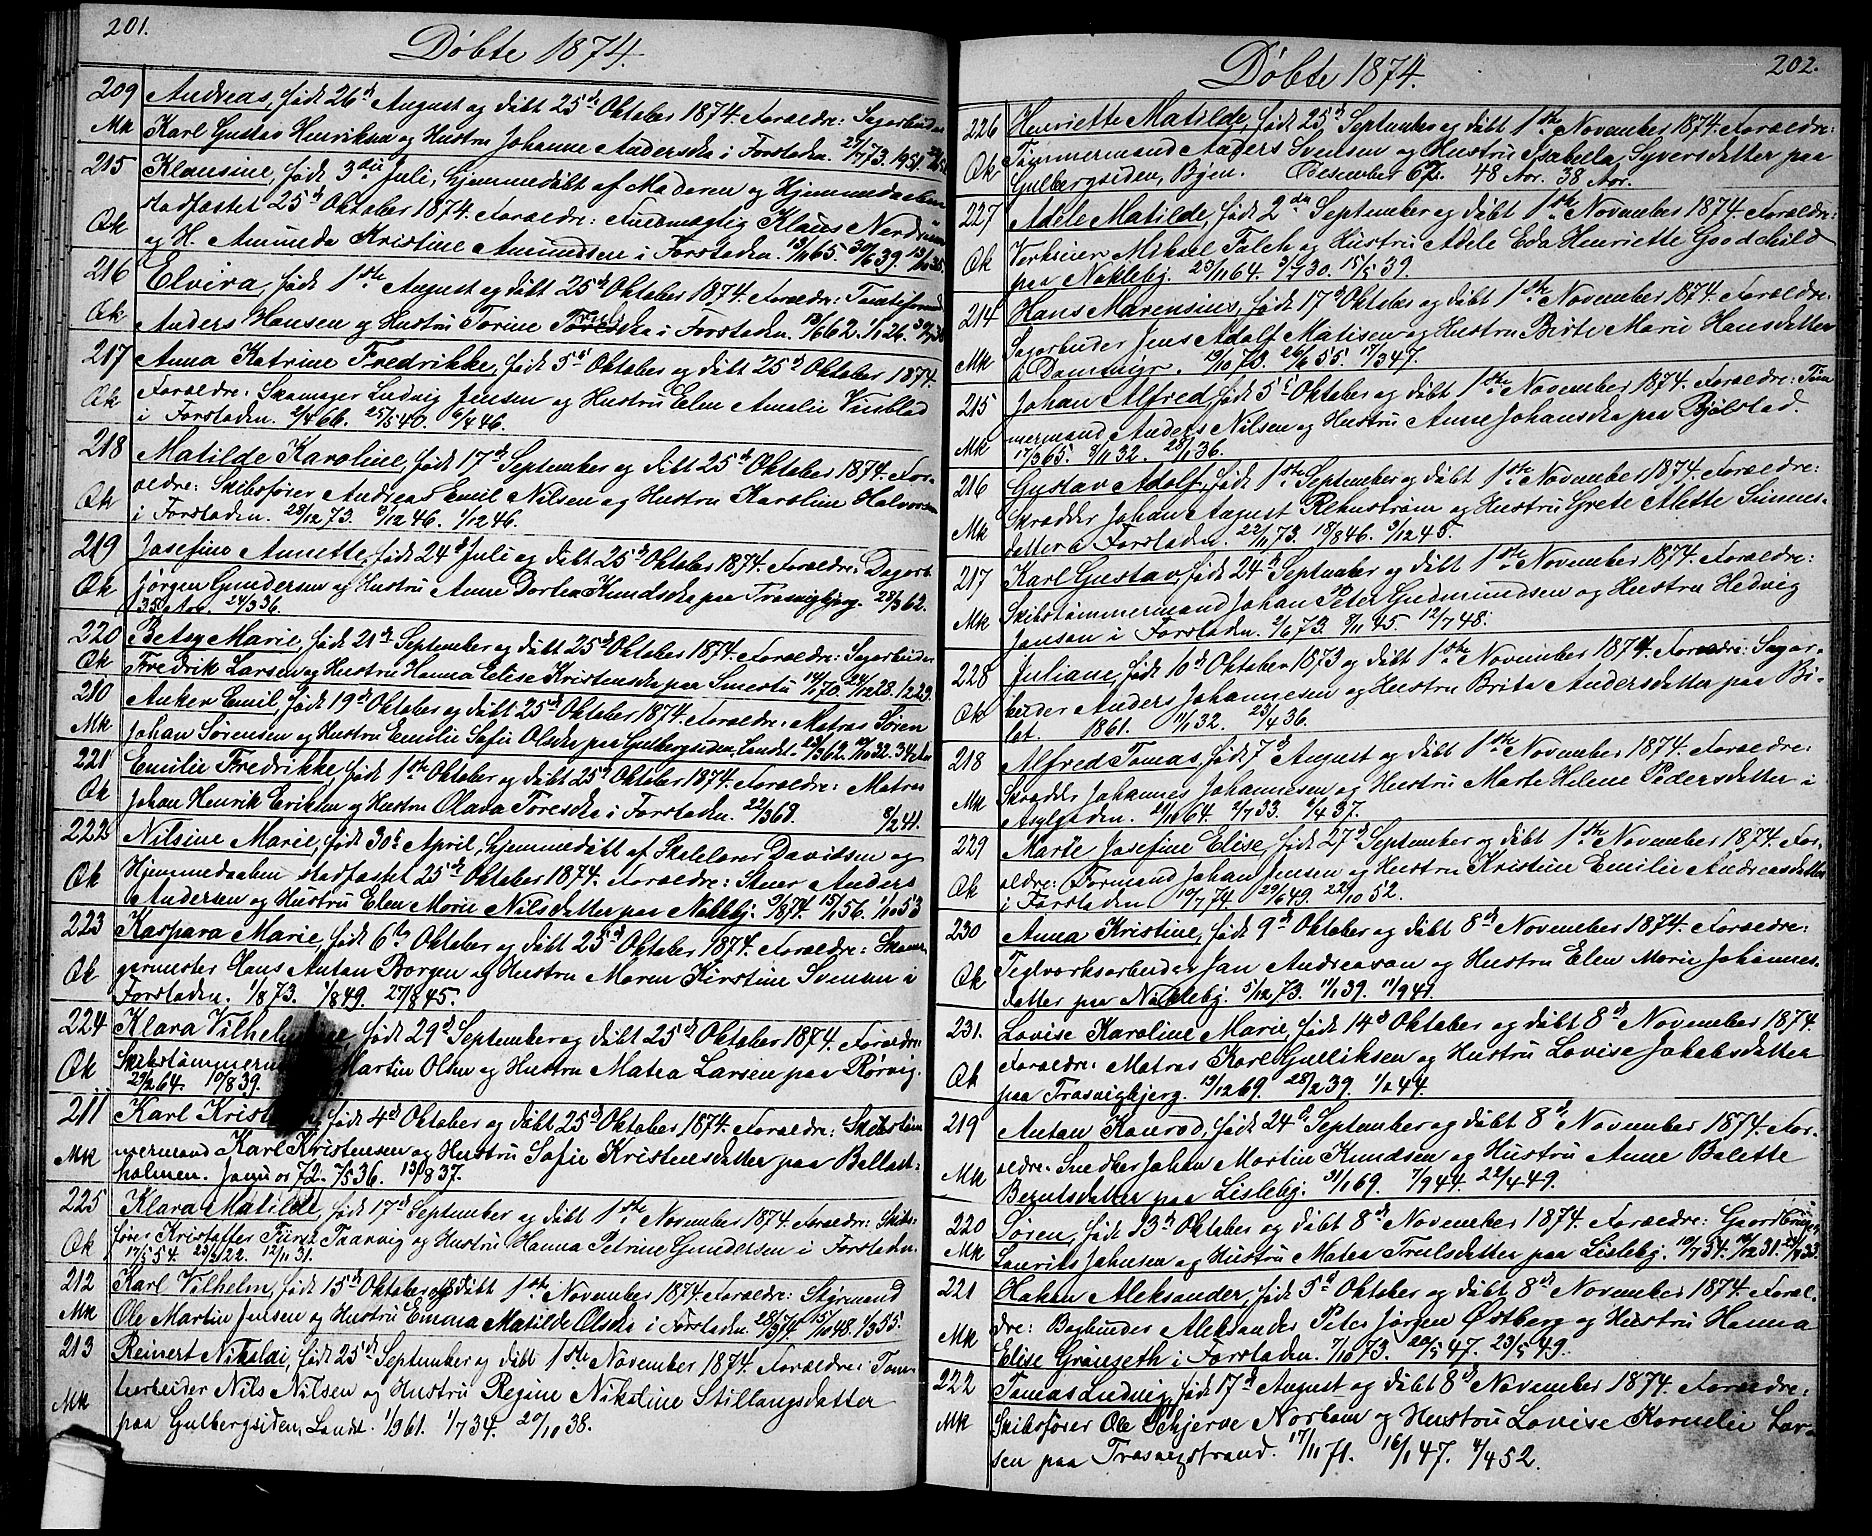 201.
Døbte 1874.
209 Andreas, født 26de August og døbt 25de Oktober 1874. Foræld​re: Sagarbeider
Mk Karl Gustav Henriksen og Hustru Johanne Andersda i Forstaden.
215 Klausine, født 3die Juli, hjemmedøbt af Moderen og Hjemmedaaben
stadfæstet 25de Oktober 1874. Forældre: Fuldmægtig Klaus Nordrum
Øk og H. Amunda Kristine Amundsen i Forstaden. 13/11 65. 30/6 39.
216 Elvira, født 1ste August og døbt 25de Oktober 1874. Forældre:
Øk Anders Hansen og Hustru Torine Trulsda i Forstaden. 13/6 62. 1/1 26.
217 Anna Katrine Fredrikke, født 5te Oktober og døbt 25de Oktober 1874.
Øk Forældre: Skomager Ludvig Jensen og Hustru Elen Amalie Vinblad
i Forstaden. 2/4 66. 25/5 40. 6/4 46.
218 Matilde Karoline, født 17de September og døbt 25de Oktober 1874. For-
Øk ældre: Skibsfører Andreas Emil Nilsen og Hustru Karoline Halvorsen
i Forstaden. 28/12 73. 3/12 46. 1/12 46.
219 Josefine Annette, født 24de Juli og døbt 25de Oktober 1874. Forældre: Dagarb.
Øk Jørgen Gundersen og Hustru Anne Dortea Knudsda paa Trosvigbjerg. 28/3 62.
35 Aar. 24/3 36.
220 Betsy Marie, født 21de September og døbt 25de Oktober 1874. Forældre: Sagarbeider
Øk Fredrik Larsen og Hustru Hanna Elise Kristensda paa Smertu 14/1 70. 24/12 28. 1/2 29.
210 Anker Emil, født 19de Oktober og døbt 25de Oktober 1874. Forældre: Matros Søren
Mk Johan Sørensen og Hustru Emilie Sofie Olsda paa Gulbergsiden, Landet. 34 Aar
221 Emilie Fredrikke, født 1ste Oktober og døbt 25de Oktober 1874. Forældre: Matros
Øk Johan Henrik Eriksen og Hustru Olava Toresda i Forstaden. 22/3 68. 8/2 41.
222 Nilsine Marie, født 30te April, hjemmedøbt af Skolelærer Davidsen og
Øk Hjemmedaaben stadfæstet 25de Oktober 1874. Forældre: Stuer Anders
Andersen og Hustru Elen Marie Nilsdatter paa Nøkleby. 9/8 74. 15/1 56. 1/10 53
223 Kaspara Marie, født 6te Oktober og døbt 25de Oktober 1874. Forældre: Skoma-
Øk germester Hans Anton Borgen og Hustru Maren Kirstine Svensen i
Forstaden. 1/8 73. 1/8 49. 27/8 45.
224 Klara Vilhelmine, født 29de September og døbt 25de Oktober 1874. Forældre:
Øk Martin Olsen og Hustru Matea Larsen paa Rørvig.
29/2 64. 10/8 39.
211 Karl født 4de Oktober og døbt 25de Oktober 1874. Forældre: Skibstøm-
Mk mermand Karl Kristensen og Hustru Sofie Kristensdatter paa Ballast-
holmen. Januar 72. 7/5 36. 13/8 37.
225 Klara Matilde, født 17de September og døbt 1ste November 1874. Forældre: Skibs-
Øk fører Kristoffer Taarvig og Hustru Hanna Petrine Gundersen i Forstaden.
17/5 54. 23/2 22. 12/11 31.
212 Karl Vilhelm, født 15de Oktober og døbt 1ste November 1874. Forældre: Styrmand
Mk Ole Martin Jensen og Hustru Emma Matilde Olsda i Forstaden. 28/3 74. 15/10 48. 1/3 55.
213 Reinert Nikolai, født 25de September og døbt 1ste November 1874. Forældre: Tom-
Mk tearbeider Nils Nilsen og Hustru Regine Nikoline Stillaugsdatter
paa Gulbergsiden, Landet. 1/9 61. 1/7 34. 20/10 38.
202.
Døbte 1874.
226 Henriette Matilde, født 25de September og døbt 1ste November 1874. Forældre:
Øk Tømmermand Anders Svensen og Hustru Isabella Syversdatter paa
Gulbergsiden, Byen. Desember 62. 48 Aar. 38 Aar.
227 Adele Matilde, født 2den September og døbt 1ste November 1874. Forældre:
Øk Verkseier Mikael Falch og Hustru Adele Eda Henriette Goodchild
paa Nøkleby. 23/11 64. 3/7 30. 15/5 39.
214 Hans Marensius, født 17de Oktober og døbt 1ste November 1874. Forældre:
Mk Sagarbeider Jens Adolf Matisen og Hustru Birte Marie Hansdatter
i Dammyr. 19/10 73. 26/6 55. 17/3 47.
215 Johan Alfred, født 5te Oktober og døbt 1ste November 1874. Forældre: Tøm-
Mk mermand Anders Nilsen og Hustru Anne Johansda paa Bjølstad.
17/3 65. 8/11 32. 28/1 36.
216 Gustav Adolf, født 1ste September og døbt 1ste November 1874. Forældre:
Mk Skrædder Johan August Rehnstrøm og Hustru Grete Alette Simens-
datter i Forstaden. 22/11 73. 18/8 46. 3/12 45.
217 Karl Gustav, født 24de September og døbt 1ste November 1874. Forældre:
Mk Skibstømmermand Johan Peter Gudmundsen og Hustru Hedvig
Jonsen i Forstaden. 2/6 73. 9/11 45. 12/7 48.
228 Juliane, født 10de Oktober 1873 og døbt 1ste November 1874. Forældre: Sagar-
Øk beider Anders Johannesen og Hustru Brita Andersdatter paa Bi-
let. 1861. 11/1 32. 23/4 36.
218 Alfred Tomas, født 7de August og døbt 1ste November 1874. Forældre:
Mk Skrædder Johannes Johannesen og Hustru Marte Helene Pedersdatter i
Asylgaden. 21/10 64. 2/7 33. 6/4 37.
229 Marie Josefine Elise, født 27de September og døbt 1ste November 1874. For-
Øk ældre: Formand Johan Jensen og Hustru Kristine Emilie Andreasdatter
i Forstaden 10/7 74. 29/6 49. 22/10 52.
230 Anna Kristine, født 9de Oktober og døbt 8de November 1874. Forældre:
Øk Teglværksarbeider Jan Andreassen og Hustru Elen Marie Johannes-
datter paa Nøkleby. 5/12 73. 11/1 39. 11/9 41.
231. Lovise Karoline Marie, født 14de Oktober og døbt 8de November 1874.
Øk Forældre: Matros Karl Gulliksen og Hustru Lovise Jakobsdatter
paa Trosvigbjerg. 19/12 69. 28/2 39. 1/2 44.
219 Anton Konrad, født 24de September og døbt 8de November 1874. For-
Mk ældre: Snedker Johan Martin Knudsen og Hustru Anne Bolette
Berntsdatter paa Lisleby. 31/1 69. 7/9 44. 22/4 49.
220 Søren, født 13de Oktober og døbt 8de November 1874. Forældre: Gaardbruger
Mk Laurits Johnsen og Hustru Matea Trulsdatter paa Lisleby. 10/7 54.
221 Håkon Aleksander, født 5te Oktober og døbt 8de November 1874. Foræl-
Mk dre: Bogbinder Aleksander Peter Jørgen Østberg og Hustru Hanna
Elise Grønseth i Forstaden. 7/10 73. 20/5 47. 23/5 49.
222 Tomas Ludvig, født 17de August og døbt 8de November 1874. Forældre:
Mk Skibsfører Ole Schjerve Norbom og Hustru Lovise Kornelie Lar-
sen paa Trosvigstrand. 17/11 71. 16/1 47. 4/4 52.